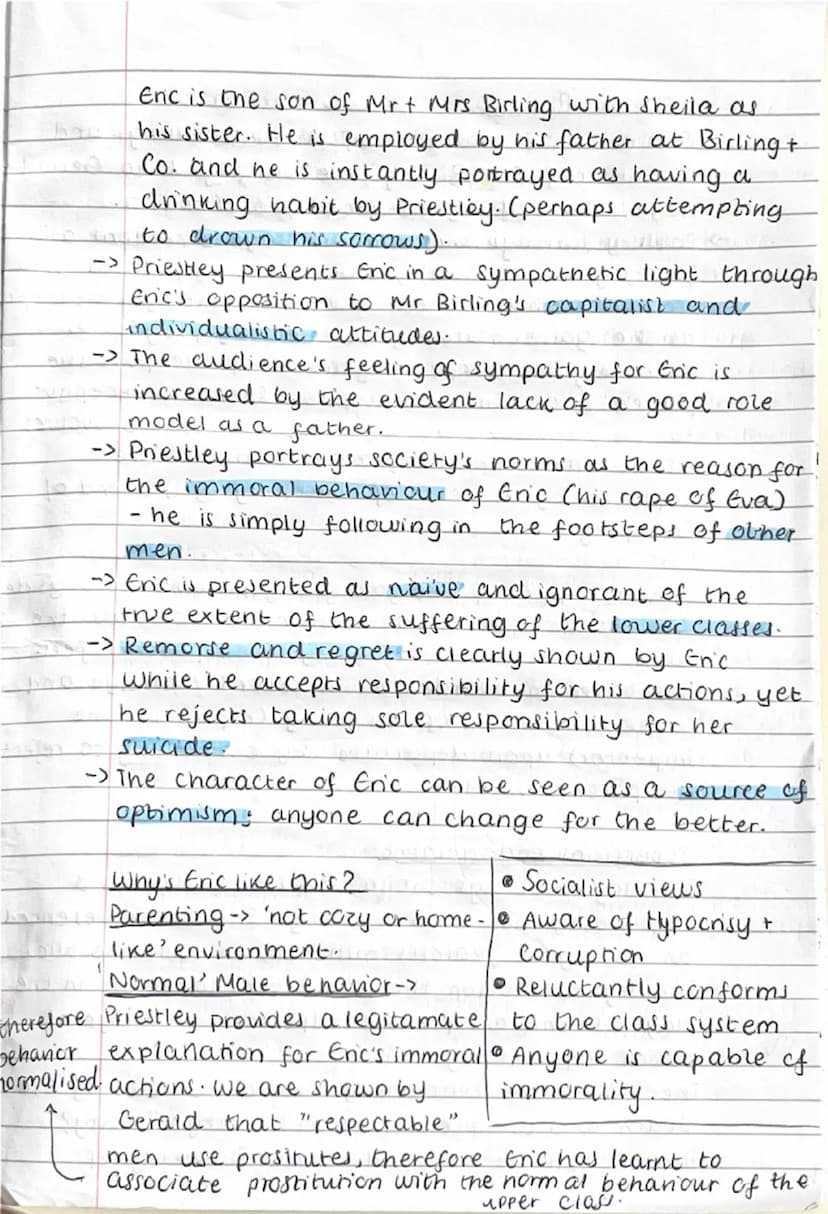 Eric is the son of Mr + Mrs Birling with Sheila as
his sister. He is employed by his father at Birling +
Co. and he is instantly portrayed as having a
drinking habit by Priestley. (perhaps attempting
to drown his sorrows).
-> Priestley presents Eric in a sympathetic light through
Eric's opposition to Mr Birling's capitalist and
individualistic attitudes.
-> The audience's feeling of sympathy for Eric is
increased by the evident lack of a good role
model as a father.
-> Priestley portrays society's norms as the reason for
the immoral behaviour of Eric (his rape of Eva)
- he is simply following in the footsteps of other
men.
-> Eric is presented as naive and ignorant of the
true extent of the suffering of the lower classes.
-> Remorse and regret is clearly shown by Eric
while he accepts responsibility for his actions, yet
he rejects taking sole responsibility for her
suicide.
-> The character of Eric can be seen as a source of
optimism; anyone can change for the better.
Why's Eric like this?
Parenting -> 'not cozy or home-
like' environment.
'Normal' Male behavior ->
Priestley provides a legitamate
explanation for Eric's immoral
actions. We are shown by
Gerald that "respectable"
men use prositutes, therefore Eric has learnt to
associate prostitution with the normal behaviour of the
upper class.
therefore
behavior
normalised
• Socialist views
• Aware of Hypocrisy +
Corruption
• Reluctantly conforms
to the class system
• Anyone is capable of
immorality.